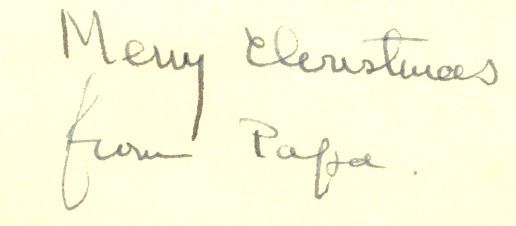 Merry Christmas
from Papa.